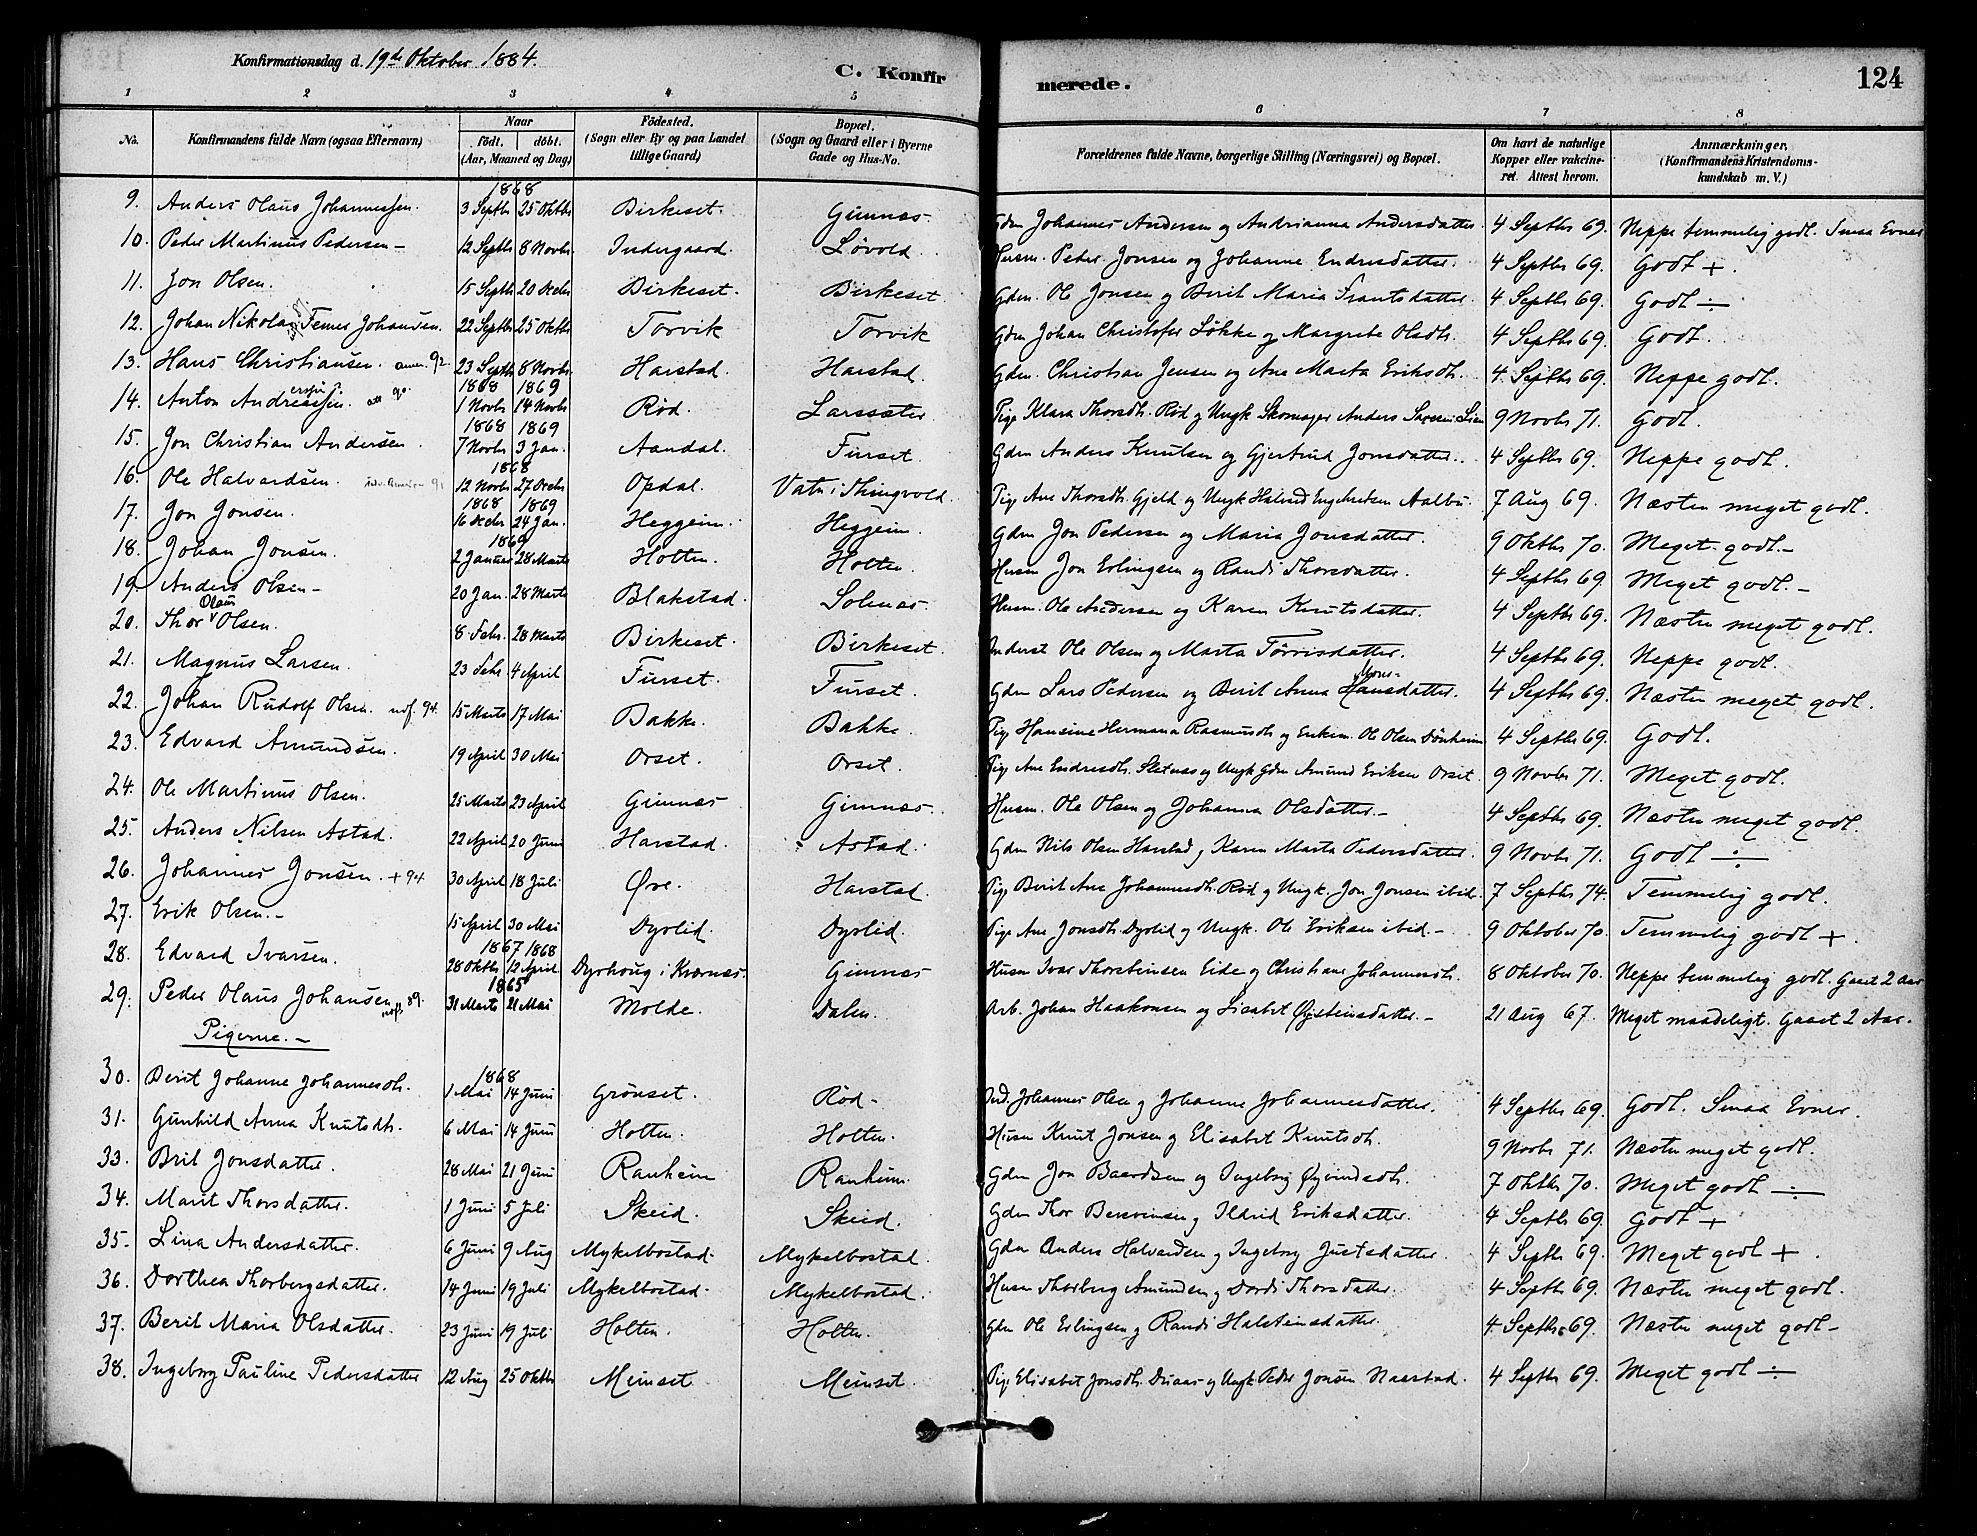 Konfirmationsdag d. 19de Oktober 1884.
C. Konfir
merede.
124
1 2 3 4 5 6 7 8
No. Konfirmandens fulde Navn (ogsaa Efternavn) Naar födt. döbt. (Aar, Maaned og Dag) Födested. (Sogn eller By og paa Landet tillige Gaard) Bopæl. (Sogn og Gaard eller i Byerne Gade og Hus-No. Forældrenes fulde Navne, borgerlige Stilling (Næringsvei) og Bopæl. Om havt de naturlige Kopper eller vakcineret. Attest herom. Anmærkninger. (Konfirmandens Kristendomskundskab m. V.)
1868
9. Anders Olaus Johannessen. 3 Septbr 25 Oktbr Birkeset. Gimnæs. Gdm Johannes Andersen og Andrianna Andersdatter. 4 Septbr 69. Neppe temmelig godt. Smaa Evner
10. Peder Martinus Pedersen – 12 Septbr 8 Novbr Indergaard. Løvold. Husm. Peder Jonsen og Johanne Endresdatter. 4 Septbr 69. Godt +.
11. Jon Olsen. 15 Septbr 20 Decbr Birkeset. Birkeset Gdm. Ole Jonsen og Berit Maria Frantsdatter. 4 Septbr 69. Godt ÷
12. Johan Nikolai Johansen. 22 Septbr 25 Oktbr Torvik Torvik Gdm Johan Christofer Løkke og Margrete Olsdtr. 4 Septbr 69. Godt.
13. Hans Christiansen. amer. 92. 23 Septbr 8 Novbr Harstad. Harstad. Gdm. Christian Jensen og Ane Marta Eriksdtr. 4 Septbr 69. Neppe godt.
1868 1869
14. Anton Andreassen. att 90. 1 Novbr 14 Novbr Rød. Larssæter Pige Klara Thorsdtr. Rød og Ungk Skomager Anders Lien 9 Novbr 71. Godt.
1868 1869
15. Jon Christian Andersen. 7 Novbr 3 Jan. Aandal. Furset. Gdm Anders Knutsen og Gjertrud Jonsdatter. 4 Septbr 69. Neppe godt.
1868
16. Ole Halvardsen. 12 Novbr 27 Decbr Opdal. Vatn i Thingvold. Pige Ane Thorsdtr. Gjeld og Ungk Halvard Engebretsen Aalbu. 7 Aug 69. Næsten meget godt.
1868 1869
17. Jon Jonsen. 16 Decbr 24 Jan. Heggeim. Heggeim. Gdm Jon Pedersen og Maria Jonsdatter. 9 Oktbr 70. Meget godt. –
1869
18. Johan Jonsen. 2 Januar 28 Marts Holten. Holten. Husm Jon Erlingsen og Randi Thorsdatter. 4 Septbr 69. Meget godt. –
19. Anders Olsen – 20 Jan. 28 Marts Blakstad. Solenæs. Husm. Ole Andersen og Karen Knutsdatter. 4 Septbr 69. Næsten meget godt.
20. Thor Olaus Olsen. 8 Febr. 28 Marts Birkeset. Birkeset. Inderst Ole Olsen og Marta Torrisdatter. 4 Septbr 69. Neppe godt.
21. Magnus Larsen. 23 Febr. 4 April Furset. Furset. Gdm Lars Pedersen og Berit Anna Hansdatter. 4 Septbr 69. Næsten meget godt.
22. Johan Rudolf Olsen. utf. 94. 15 Marts 17 Mai Bakke. Bakke. Pige Hansine Hermana Rasmusdtr og Enkem. Ole Olsen Sønheim 4 Septbr 69. Godt.
23. Edvard Amundsen. 19 April 30 Mai Orset. Orset. Pige Ane Endresdtr. Sletnæs og Ungk Gdm Amund Eriksen Orset. 9 Novbr 71. Meget godt.
24. Ole Martinus Olsen. 25 Marts 23 April Gimnæs Gimnæs. Husm. Ole Olsen og Johanna Olsdatter. – 4 Septbr 69. Næsten meget godt.
25. Anders Nilsen Astad. 22 April 20 Juni Harstad. Astad. Gdm Nils Olsen Harstad og Karen Marta Pedersdatter. 9 Novbr 71. Godt ÷
26. Johannes Jonsen. + 94 30 April 18 Juli Øre. Harstad. Pige Berit Ane Johannesdtr. Rød og Ungk. Jon Jonsen ibid. 7 Septbr 74. Temmelig godt.
27. Erik Olsen. – 15 April 30 Mai Dyrlid. Dyrlid. Pige Ane Jonsdtr. Dyrlid og Ungk. Ole Eriksen ibid – 9 Oktober 70. Temmelig godt +.
1867 1868
28. Edvard Ivarsen. 28 Oktbr 12 April Dyrhoug i Kværnæs. Gimnæs Husm Ivar Thorsteinsen Eide og Christiane Johannesdtr. 8 Oktober 70. Neppe temmelig godt. Gaaet 2 Aar
1865
29. Peder Olaus Johansen utf. 89. 31 Marts 21 Mai Molde. Dalen. Arb. Johan Haakonsen og Lisabet Øisteinsdatter. – 21 Aug 67. Meget maadeligt. Gaaet 2 Aar.
Pigerne. –
1868
30. Berit Johanne Johannesdtr. 1 Mai 14 Juni Grønset. Rød – Ind. Johannes Olsen og Johanne Johannesdatter. 4 Septbr 69. Godt. Smaa Evner.
31. Gunhild Anna Knutsdtr. 6 Mai 14 Juni Holten. Holten. Husm Knut Jonsen og Elisabet Knutsdtr. 9 Novbr 71. Næsten meget godt.
33. Brit Jonsdatter. 28 Mai 21 Juni Ranheim Ranheim. Gdm Jon Baardsen og Ingeborg Øyvindsdtr. 7 Oktbr 70. Meget godt ÷
34. Marit Thorsdatter. 1 Juni 5 Juli Skeid. Skeid. Gdm Thor Bersvensen og Ildrid Eriksdatter. 4 Septbr 69. Godt +
35. Lina Andersdatter. 6 Juni 9 Aug Mykelbostad. Mykelbostad. Gdm Anders Halvardsen og Ingeborg Justsdatter. 4 Septbr 69. Meget godt +.
36. Dorthea Thorbergsdatter. 14 Juni 19 Juli Mykelbostad. Mykelbostad. Husm Thorberg Amundsen og Dordi Thorsdatter. 4 Septbr 69. Næsten meget godt.
37. Berit Maria Olsdatter. 23 Juni 19 Juli Holten. Holten. Gdm Ole Erlingsen og Randi Halsteinsdatter. 4 Septbr 69. Næsten meget godt –
38. Ingeborg Pauline Pedersdatter 12 Aug 25 Oktbr Meinset. Meinset. Pige Elisabet Jonsdtr. og Ungk Peder Jonsen Naastad. 4 Septbr 69. Meget godt ÷